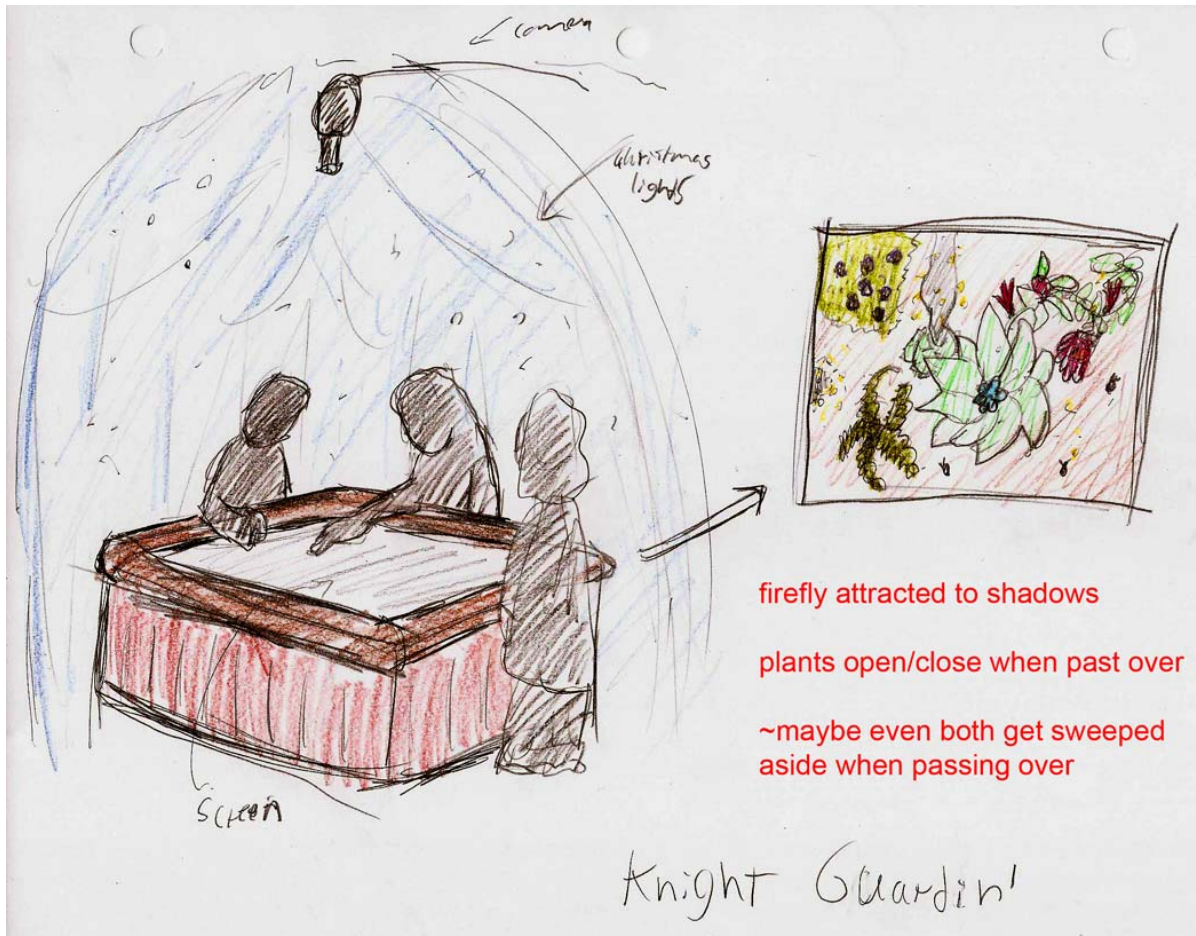 camera
Christmas
lights
firefly attracted to shadows
plants open/close when past over
~maybe even both get sweeped
aside when passing over
Screen
Knight Guardin'